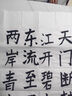 天门中断
江开碧
东流至
两岸青